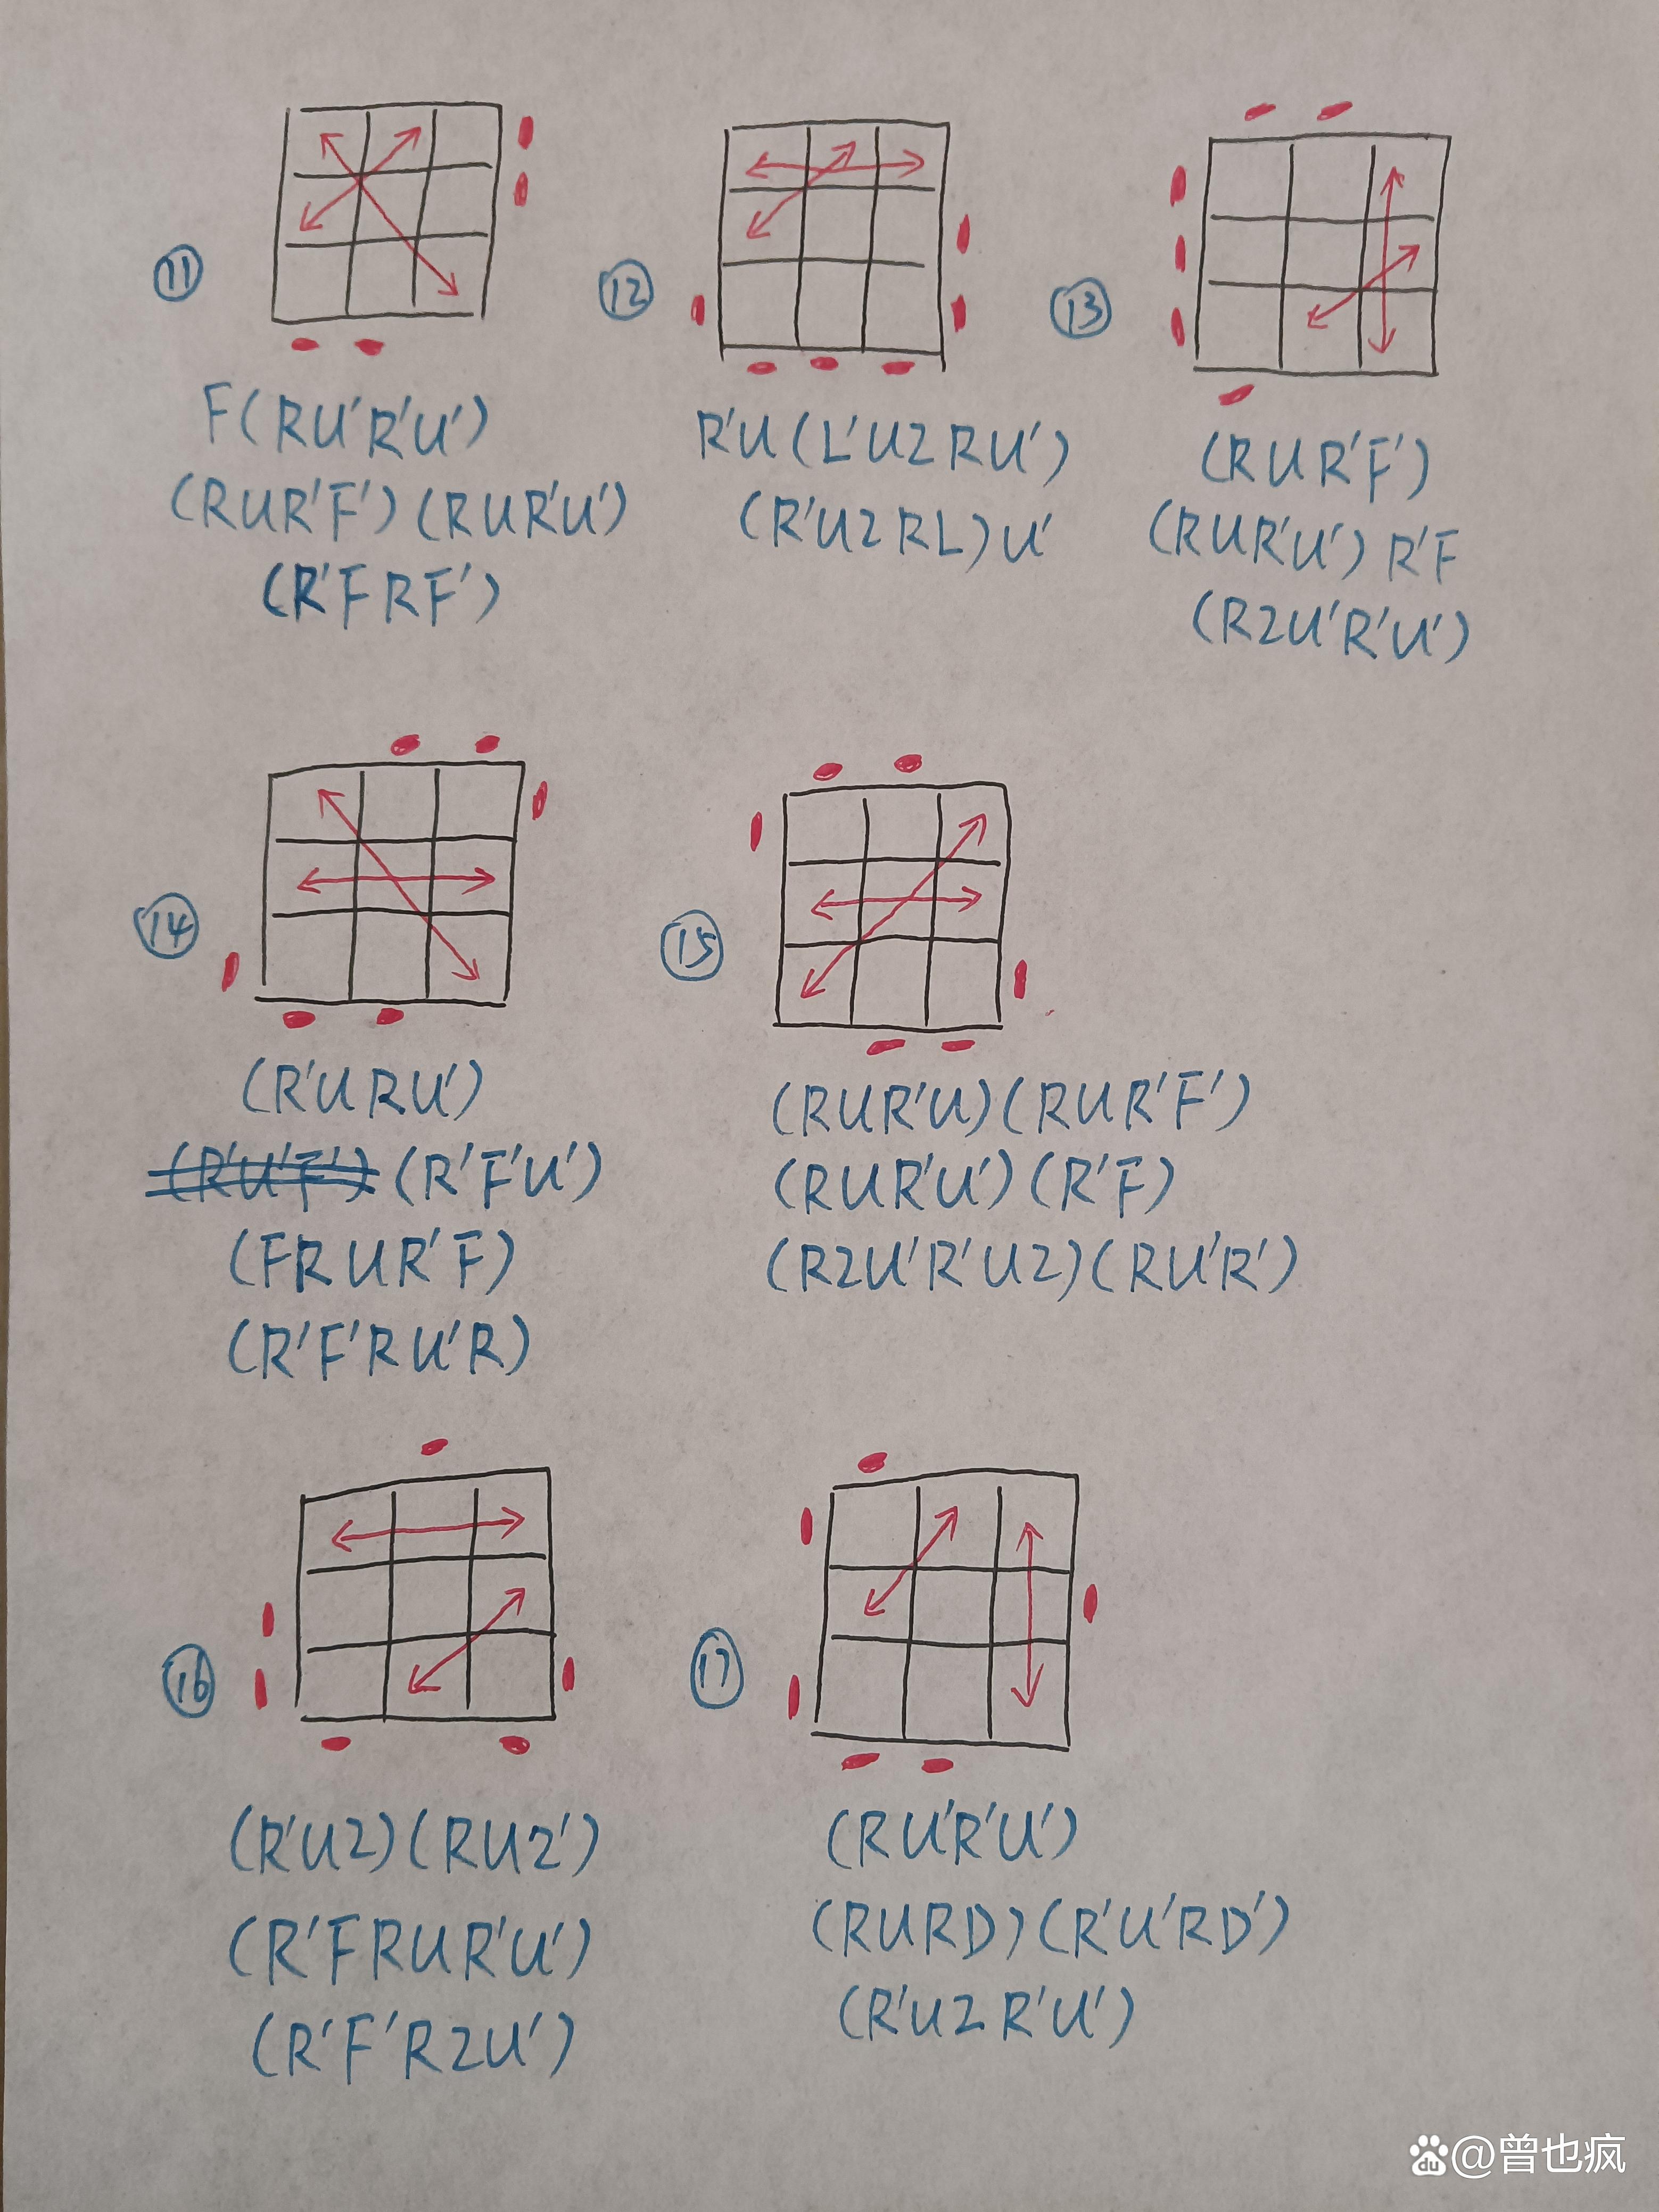 ⑪
F(RU'R'U')
(RUR'F')(RUR'U')
(R'FRF')
⑫
R'U(L'U2RU')
(R'U2RL)U'
⑬
(RUR'F')
(RUR'U')R'F
(R2U'R'U')
⑭
(R'URU')
(R'U'F')(R'F'U')
(FRUR'F)
(R'F'RU'R)
⑮
(RUR'U)(RUR'F')
(RUR'U')(R'F)
(R2U'R'U2)(RU'R')
⑯
(R'U2)(RU2')
(R'FRUR'U')
(R'F'R2U')
⑰
(RU'R'U')
(RURD)(R'U'RD')
(R'U2R'U')
du @曾也疯